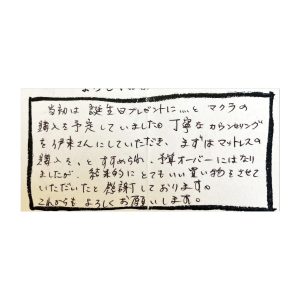 当初は誕生日プレゼントに…とマクラの
購入を予定していました。丁寧なカウンセリング
を伊東さんにしていただき、まずはマットレスの
購入を、とすすめられ、予算オーバーにはなり
ましたが、結果的にとてもいい買い物をさせて
いただいたと感謝しております。
これからもよろしくお願いします。